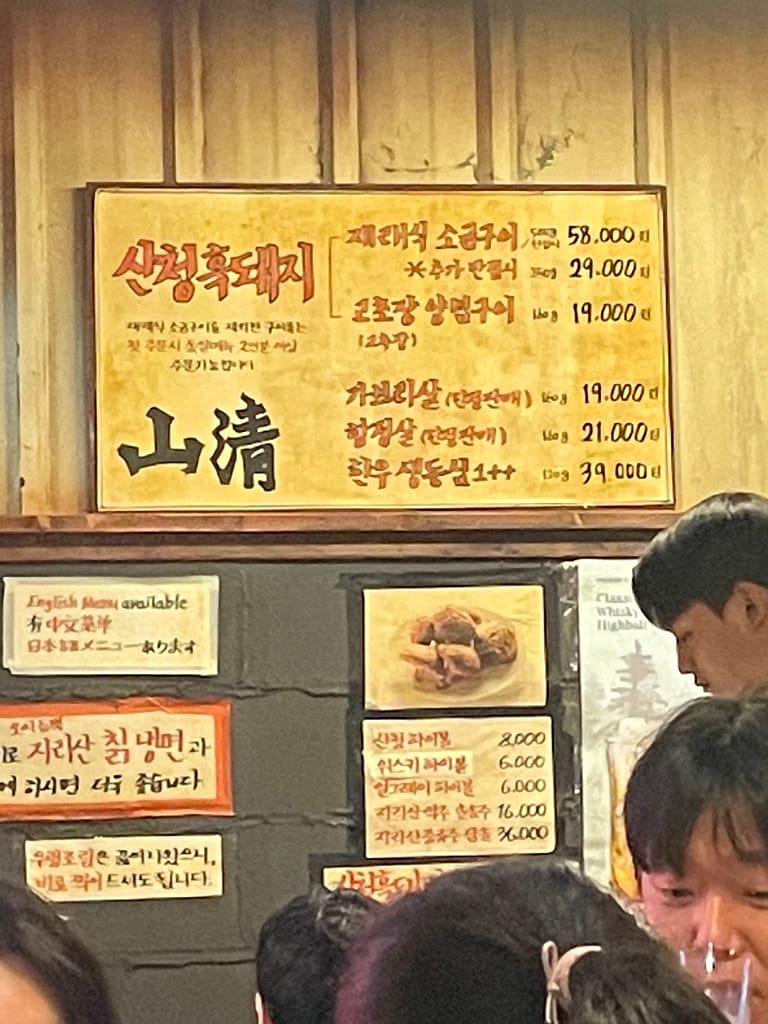 산청흑돼지
재래식 소금구이 58.000원
※추가 반접시 29.000원
고추장 양념구이 160g 19.000원
재래식 소금구이를 제외한 구이류는
첫 주문시 동일메뉴 2인분 이상
주문가능합니다
山清
가브리살 (한정판매) 160g 19.000원
항정살 (한정판매) 160g 21.000원
한우 생등심 1++ 120g 39.000원
English Menu available
有中文菜单
日本語メニューあります
지리산 칡냉면과
하시면 더욱 좋습니다
우렁조림은 끓여나왔으니,
바로 찍어드셔도 됩니다.
Classic
Whisky
Highball
산청 하이볼 8.000
위스키 하이볼 6.000
얼그레이 하이볼 6.000
지리산 약주 16.000
지리산 36.000
산청흑돼지